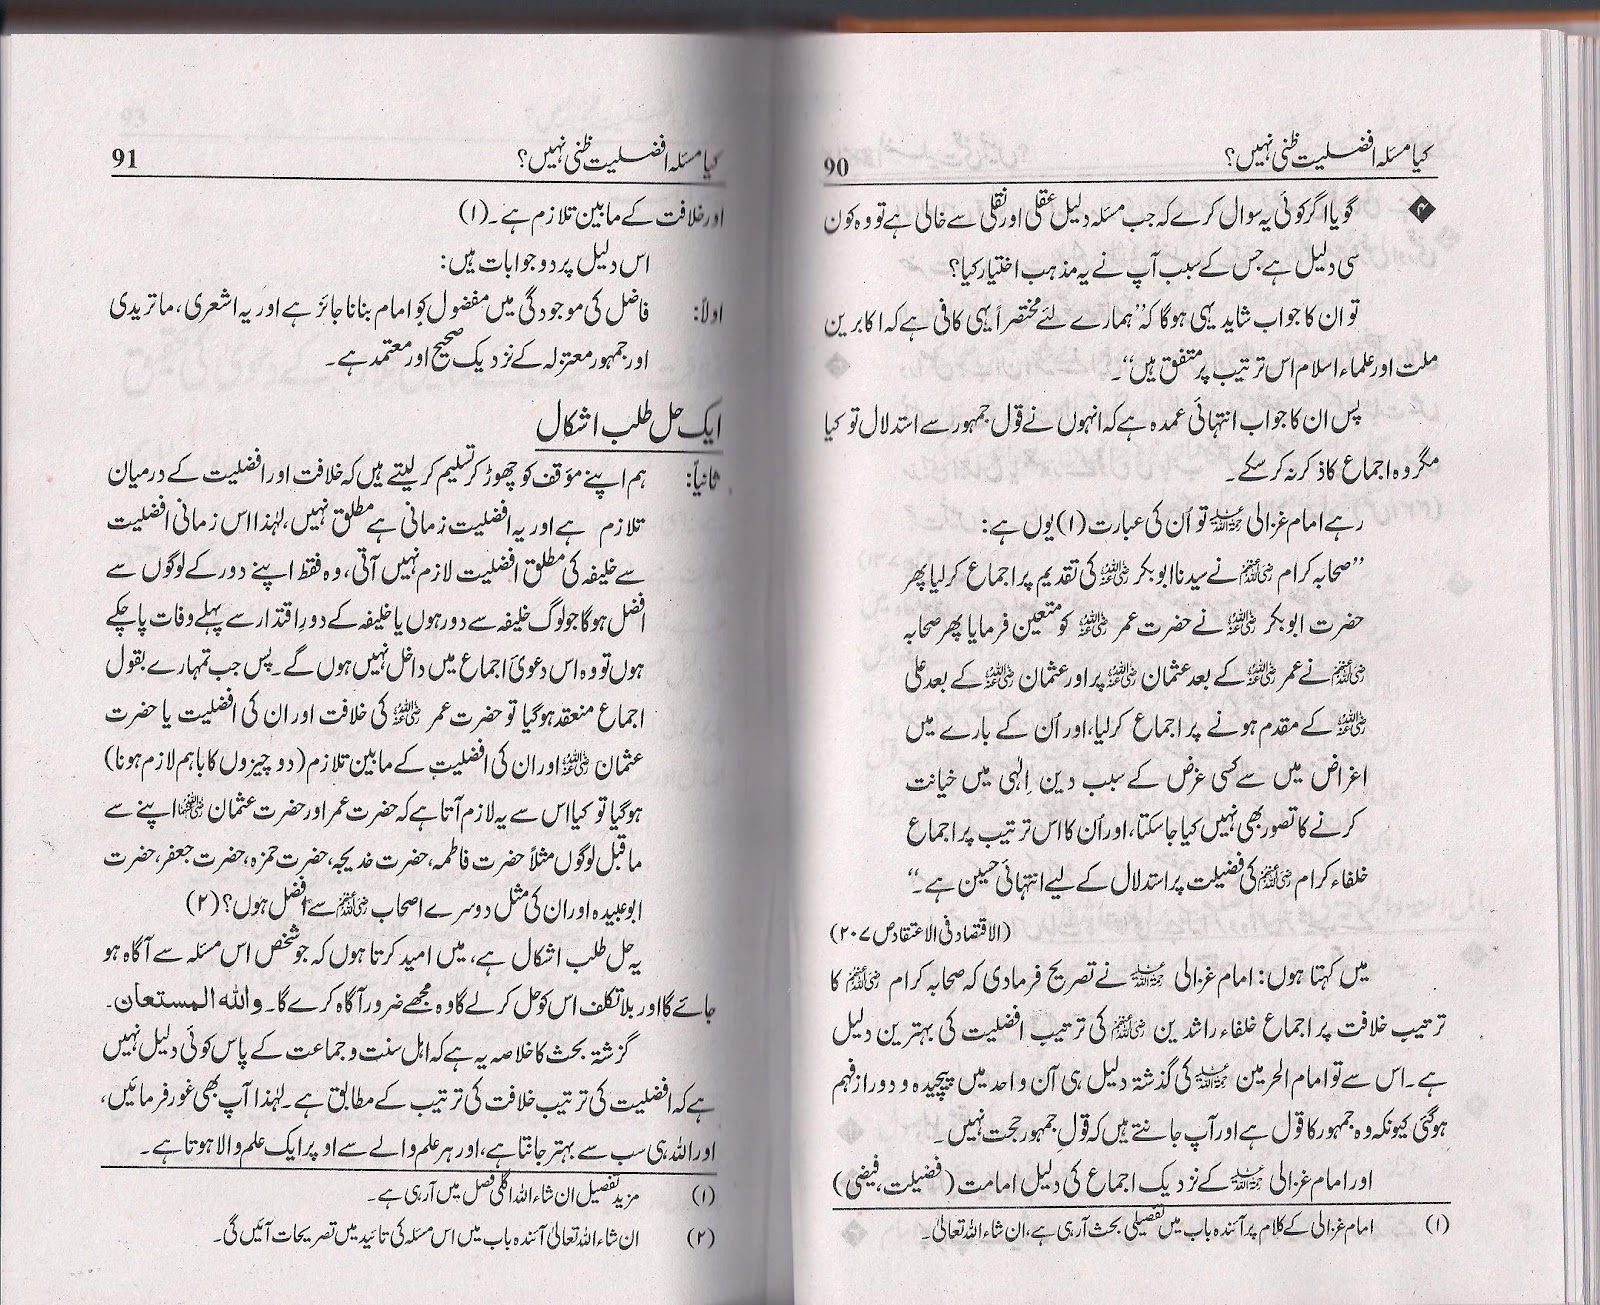 کیا مسئلہ افضلیت ظنی نہیں؟ 90
۴ گویا اگر کوئی یہ سوال کرے کہ جب مسئلہ دلیل عقلی اور نقلی سے خالی ہے تو وہ کون
سی دلیل ہے جس کے سبب آپ نے یہ مذہب اختیار کیا؟
تو ان کا جواب شاید یہی ہوگا کہ ”ہمارے لئے مختصراً یہی کافی ہے کہ اکابرین
ملت اور علماء اسلام اس ترتیب پر متفق ہیں“۔
پس ان کا جواب انتہائی عمدہ ہے کہ انہوں نے قول جمہور سے استدلال تو کیا
مگر وہ اجماع کا ذکر نہ کر سکے۔
رہے امام غزالی رحمۃ اللہ علیہ تو اُن کی عبارت (۱) یوں ہے:
”صحابہ کرام رضی اللہ عنہم نے سیدنا ابوبکر رضی اللہ عنہ کی تقدیم پر اجماع کر لیا پھر
حضرت ابوبکر رضی اللہ عنہ نے حضرت عمر رضی اللہ عنہ کو متعین فرمایا پھر صحابہ
رضی اللہ عنہم نے عمر رضی اللہ عنہ کے بعد عثمان رضی اللہ عنہ پر اور عثمان رضی اللہ عنہ کے بعد علی
رضی اللہ عنہ کے مقدم ہونے پر اجماع کر لیا، اور اُن کے بارے میں
اغراض میں سے کسی غرض کے سبب دین اِلٰہی میں خیانت
کرنے کا تصور بھی نہیں کیا جا سکتا، اور اُن کا اس ترتیب پر اجماع
خلفاء کرام رضی اللہ عنہم کی فضیلت پر استدلال کے لیے انتہائی حسین ہے۔“
(الاقتصاد فی الاعتقاد ص ۲۰۷)
میں کہتا ہوں: امام غزالی رحمۃ اللہ علیہ نے تصریح فرما دی کہ صحابہ کرام رضی اللہ عنہم کا
ترتیب خلافت پر اجماع خلفاء راشدین رضی اللہ عنہم کی ترتیب افضلیت کی بہترین دلیل
ہے۔ اس سے تو امام الحرمین رحمۃ اللہ علیہ کی گذشتہ دلیل ہی آن واحد میں پیچیدہ و دور از فہم
ہو گئی کیونکہ وہ جمہور کا قول ہے اور آپ جانتے ہیں کہ قولِ جمہور حجت نہیں۔
اور امام غزالی رحمۃ اللہ علیہ کے نزدیک اجماع کی دلیل امامت (فضیلت، فیضی)
(۱) امام غزالی کے کلام پر آئندہ باب میں تفصیلی بحث آرہی ہے، ان شاء اللہ تعالیٰ۔
کیا مسئلہ افضلیت ظنی نہیں؟ 91
اور خلافت کے مابین تلازم ہے۔ (۱)
اس دلیل پر دو جوابات ہیں:
اولاً: فاضل کی موجودگی میں مفضول کو امام بنانا جائز ہے اور یہ اشعری، ماتریدی
اور جمہور معتزلہ کے نزدیک صحیح اور معتمد ہے۔
ایک حل طلب اشکال
ثانیاً: ہم اپنے مؤقف کو چھوڑ کر تسلیم کر لیتے ہیں کہ خلافت اور افضلیت کے درمیان
تلازم ہے اور یہ افضلیت زمانی ہے مطلق نہیں، لہٰذا اس زمانی افضلیت
سے خلیفہ کی مطلق افضلیت لازم نہیں آتی، وہ فقط اپنے دور کے لوگوں سے
افضل ہوگا جو لوگ خلیفہ سے دور ہوں یا خلیفہ کے دورِ اقتدار سے پہلے وفات پا چکے
ہوں تو وہ اس دعویٔ اجماع میں داخل نہیں ہوں گے۔ پس جب تمہارے بقول
اجماع منعقد ہو گیا تو حضرت عمر رضی اللہ عنہ کی خلافت اور ان کی افضلیت یا حضرت
عثمان رضی اللہ عنہ اور ان کی افضلیت کے مابین تلازم (دو چیزوں کا باہم لازم ہونا)
ہو گیا تو کیا اس سے یہ لازم آتا ہے کہ حضرت عمر اور حضرت عثمان رضی اللہ عنہما اپنے سے
ماقبل لوگوں مثلاً حضرت فاطمہ، حضرت خدیجہ، حضرت حمزہ، حضرت جعفر، حضرت
ابو عبیدہ اور ان کی مثل دوسرے اصحاب رضی اللہ عنہم سے افضل ہوں؟ (۲)
یہ حل طلب اشکال ہے، میں امید کرتا ہوں کہ جو شخص اس مسئلہ سے آگاہ ہو
جائے گا اور بلا تکلف اس کو حل کر لے گا وہ مجھے ضرور آگاہ کرے گا۔ واللہ المستعان۔
گزشتہ بحث کا خلاصہ یہ ہے کہ اہل سنت و جماعت کے پاس کوئی دلیل نہیں
ہے کہ افضلیت کی ترتیب خلافت کی ترتیب کے مطابق ہے۔ لہٰذا آپ بھی غور فرمائیں،
اور اللہ ہی سب سے بہتر جانتا ہے، اور ہر علم والے سے اوپر ایک علم والا ہوتا ہے۔
(۱) مزید تفصیل ان شاء اللہ اگلی فصل میں آرہی ہے۔
(۲) ان شاء اللہ تعالیٰ آئندہ باب میں اس مسئلہ کی تائید میں تصریحات آئیں گی۔